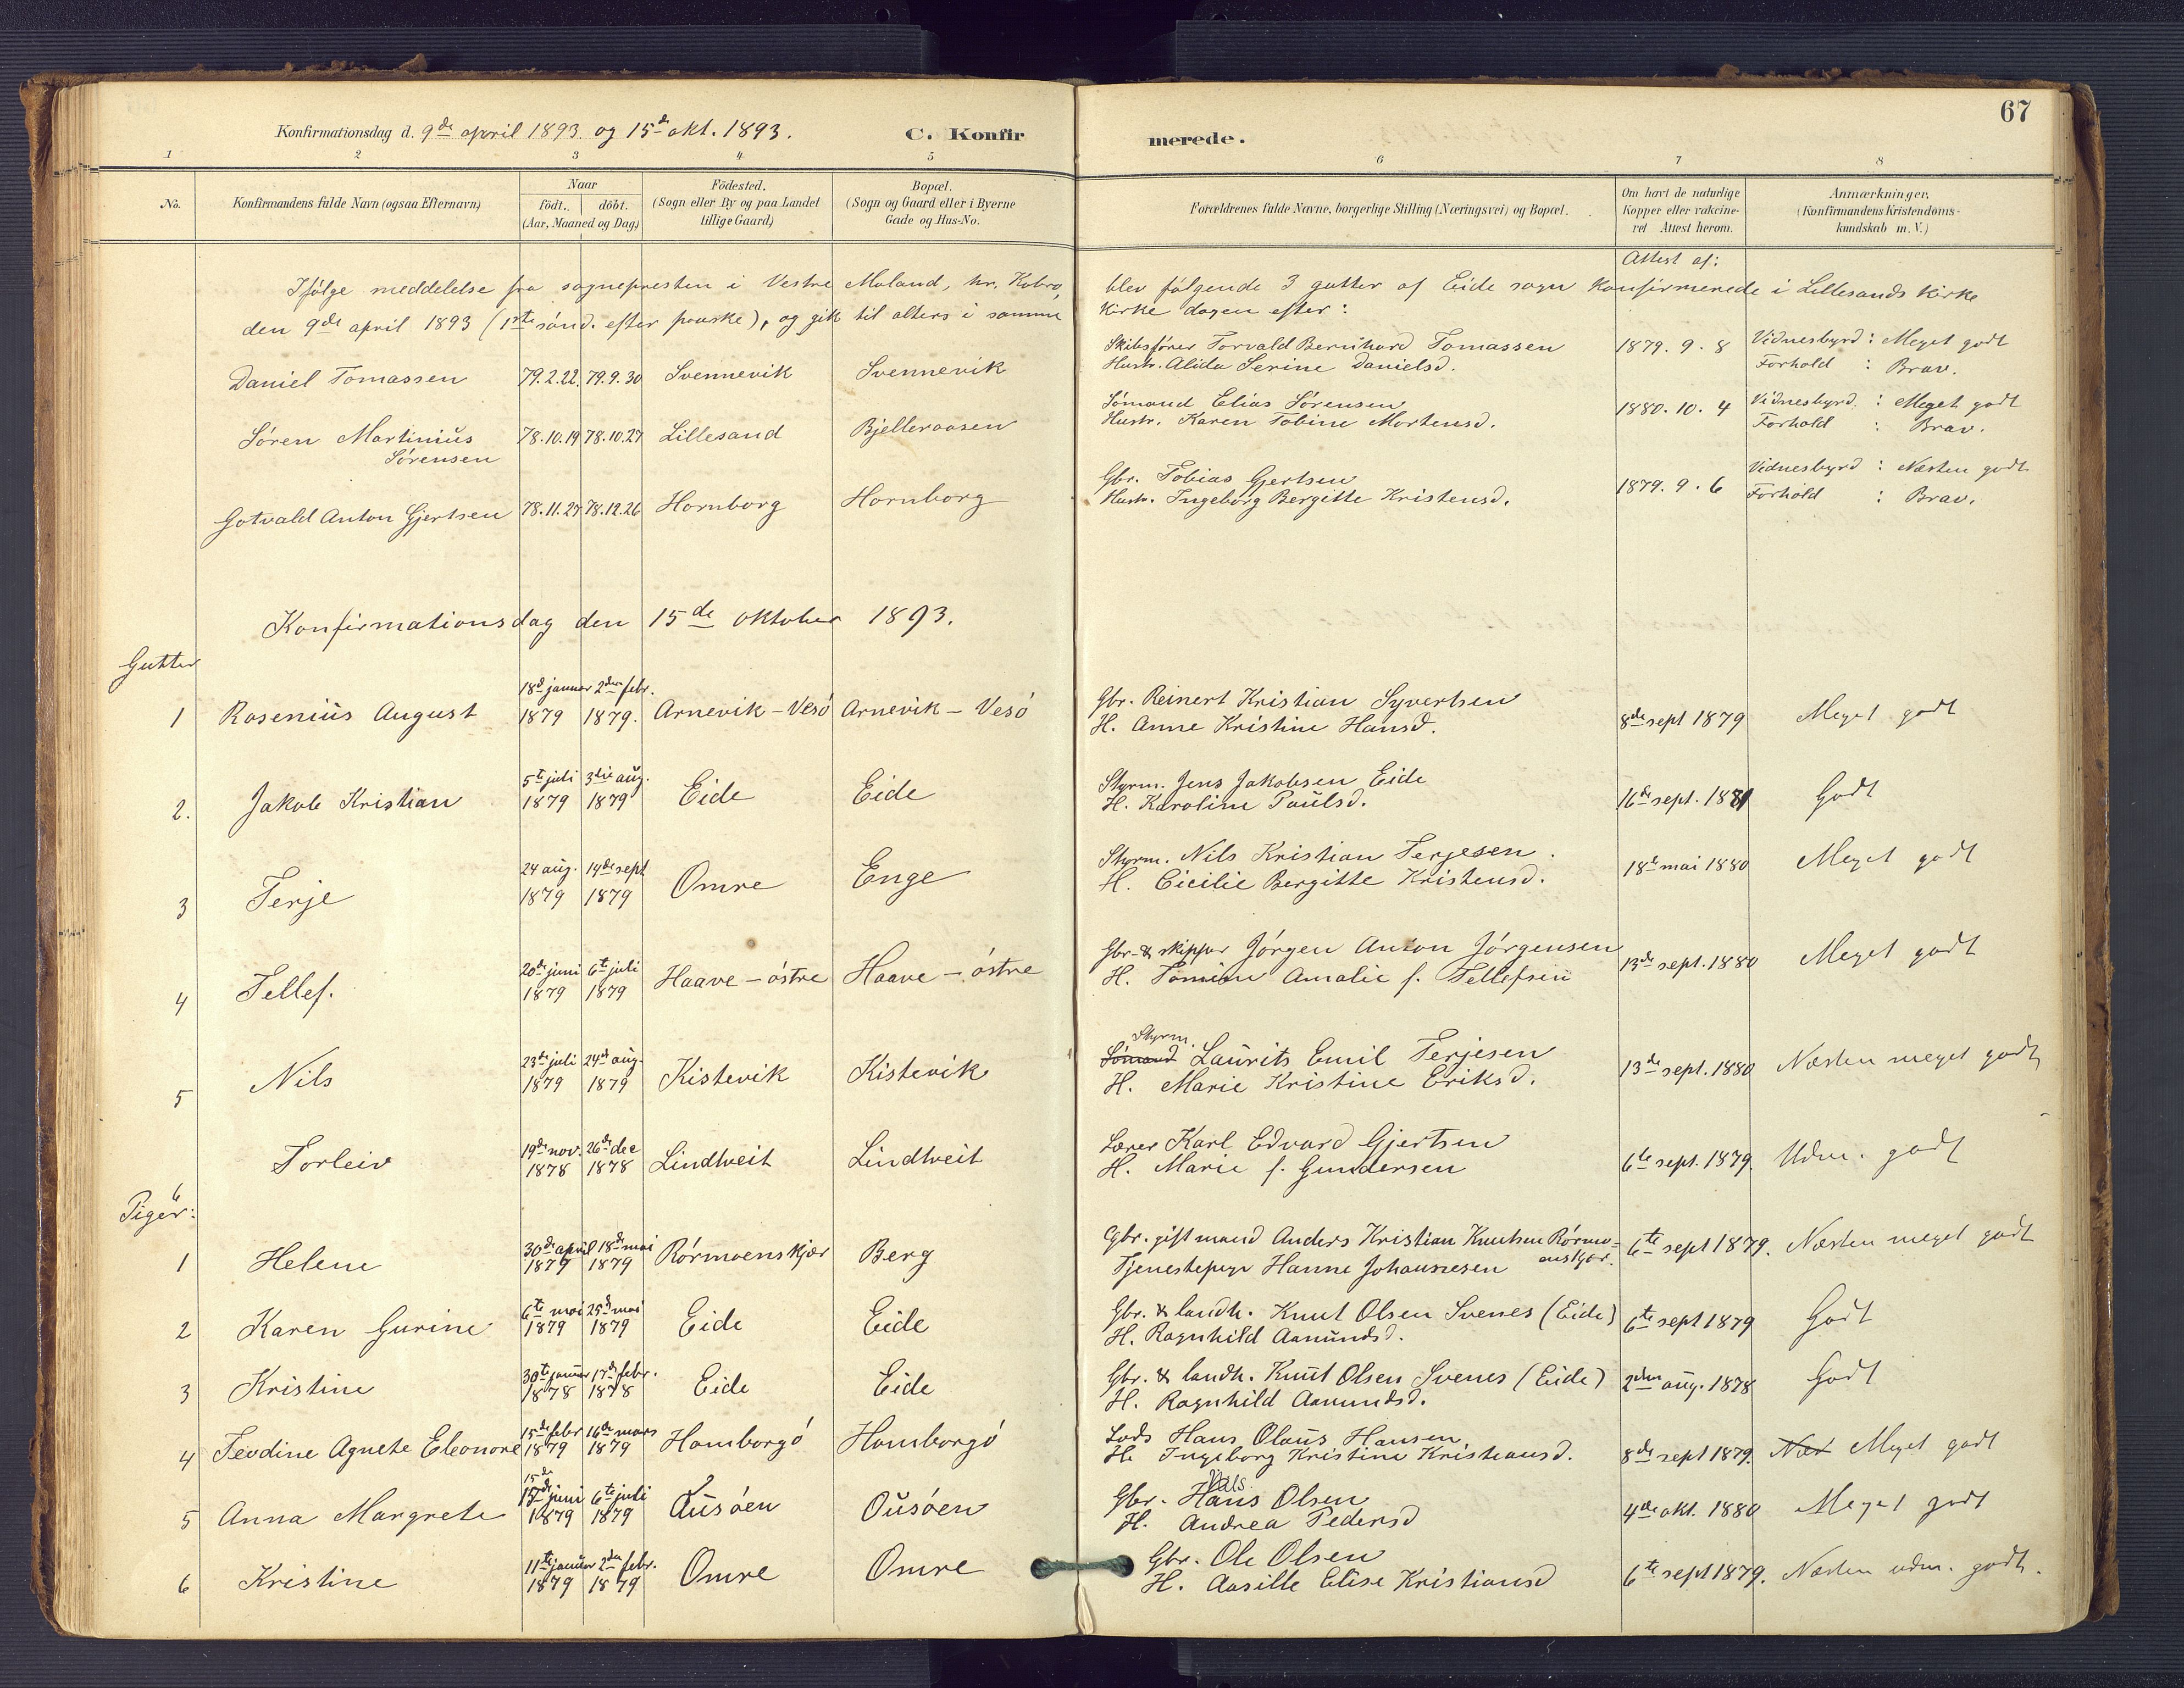 67
Konfirmationsdag d. 9de april 1893 og 15de okt. 1893. C. Konfirmerede.
1 2 3 4 5 6 7 8
No. Konfirmandens fulde Navn (ogsaa Efternavn) Naar födt., döbt. (Aar, Maaned og Dag) Födested. (Sogn eller By og paa Landet tillige Gaard) Bopæl. (Sogn og Gaard eller i Byerne Gade og Hus-No. Forældrenes fulde Navne, borgerlige Stilling (Næringsvei) og Bopæl. Om havt de naturlige Kopper eller vakcineret Attest herom. Anmærkninger, (Konfirmandens Kristendomskundskab m. V.)
Attest af:
Ifölge meddelelse fra sognepresten i Vestre Moland, hr. Kobro, blev fölgende 3 gutter af Eide sogn konfirmerede i Lillesands kirke
den 9de april 1893 (1ste sönd. efter paaske), og gik til alters i samme kirke dagen efter:
Daniel Tomassen 79.2.22. 79.9.30 Svennevik Svennevik Skibsförer Torvald Bernhard Tomassen Hustr. Alida Serine Danielsd. 1879.9.8 Vidnesbyrd: Meget godt Forhold: Brav.
Sören Martinius Sörensen 78.10.19 78.10.27 Lillesand Bjelleraasen Sömand Elias Sörensen Hustr. Karen Tobine Mortensd. 1880.10.4 Vidnesbyrd: Meget godt Forhold: Brav.
Gotvald Anton Gjertsen 78.11.27 78.12.26 Hornborg Hornborg Gbr. Tobias Gjertsen Hustr. Ingeborg Bergitte Kristensd. 1879.9.6 Vidnesbyrd: Næsten godt Forhold: Brav.
Konfirmationsdag den 15de oktober 1893.
Gutter
1 Rosenius August 18d januar 1879 2den febr. 1879. Arnevik - Vesö Arnevik - Vesö Gbr. Reinert Kristian Syvertsen H. Anne Kristine Hansd. 8de sept 1879 Meget godt
2. Jakob Kristian 5te juli 1879 3die aug. 1879 Eide Eide Styrm. Jens Jakobsen Eide H. Karoline Paulsd. 16de sept. 1881 Godt
3 Terje 24 aug. 1879 14de sept 1879 Omre Enge Styrm. Nils Kristian Terjesen. H. Cicilie Bergitte Kristensd. 18de mai 1880 Meget godt
4 Tellef. 20de juni 1879 6te juli 1879 Haave - östre Haave - östre Gbr. & skipper Jörgen Anton Jörgensen H. Tomine Amalie f. Tellefsen 13de sept. 1880 Meget godt
5 Nils 23de juli 1879 24de aug. 1879 Kistevik Kistevik Styrm. Sömand Laurits Emil Terjesen H. Marie Kristine Eriksd. 13de sept. 1880 Næsten meget godt
6 Torleiv 19de nov. 1878 26de dec 1878 Lindtveit Lindtveit Lærer Karl Edvard Gjertsen H. Marie f. Gundersen 6te sept. 1879. Udm. godt
Piger:
1 Helene 30de april 1879 18de mai 1879 Rörmoenskjær Berg Gbr. gift mand Anders Kristian Knutsen Rörmoenskjær. Tjenestepige Hanne Johannesen 6te sept 1879. Næsten meget godt
2 Karen Gurine 6te mai 1879 25de mai 1879 Eide Eide Gbr. & landh. Knut Olsen Svenes (Eide) H. Ragnhild Aanundsd. 6te sept 1879 Godt
3 Kristine 30te januar 1878 17de febr. 1878 Eide Eide Gbr. & landh. Knut Olsen Svenes (Eide) H. Ragnhild Aanundsd. 2den aug. 1878 Godt
4 Teodine Agnete Eleonore 15de febr 1879 16de mars 1879 Homborgö Homborgö Lods Hans Olaus Hansen H. Ingeborg Kristine Kristiansd. 8de sept 1879. Næs Meget godt
5 Anna Margrete 15de juni 1879 6te juli 1879 Ousöen Ousöen Gbr. Hans Nils Olsen H. Andrea Pedersd 4de okt. 1880 Meget godt
6 Kristine 11te januar 1879 2den febr. 1879 Omre Omre Gbr. Ole Olsen H. Aasille Elise Kristiansd 6te sept 1879. Næsten udm. godt.